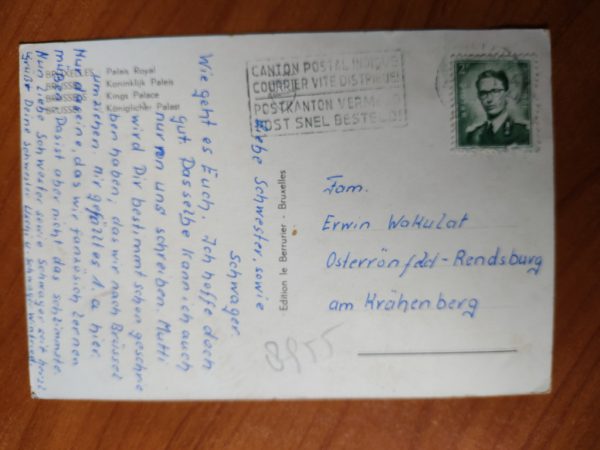 BRUXELLES Palais Royal
BRUSSEL Koninklijk Paleis
BRUSSELS Kings Palace
BRÜSSEL Königlicher Palast
CANTON POSTAL INDIQUÉ
COURRIER VITE DISTRIBUÉ!
POSTKANTON VERMELD
POST SNEL BESTELD!
Liebe Schwester, sowie
Schwager.
Wie geht es Euch. Ich hoffe doch
gut. Dasselbe kann ich auch
nur von uns schreiben. Mutti
wird Dir bestimmt schon geschrie
ben haben, das wir nach Brüssel
umziehen. Mir gefällt es 1a hier.
Nur das eine, das wir fansösich lernen
müßen. Das ist aber nicht das schlimmste.
Nun liebe Schwester sowie Schwager seit
Grüße Deine Schwester
Edition le Berrurier - Bruxelles
Fam.
Erwin Wakulat
Osterrönfeld-Rendsburg
am Krähenberg
8955